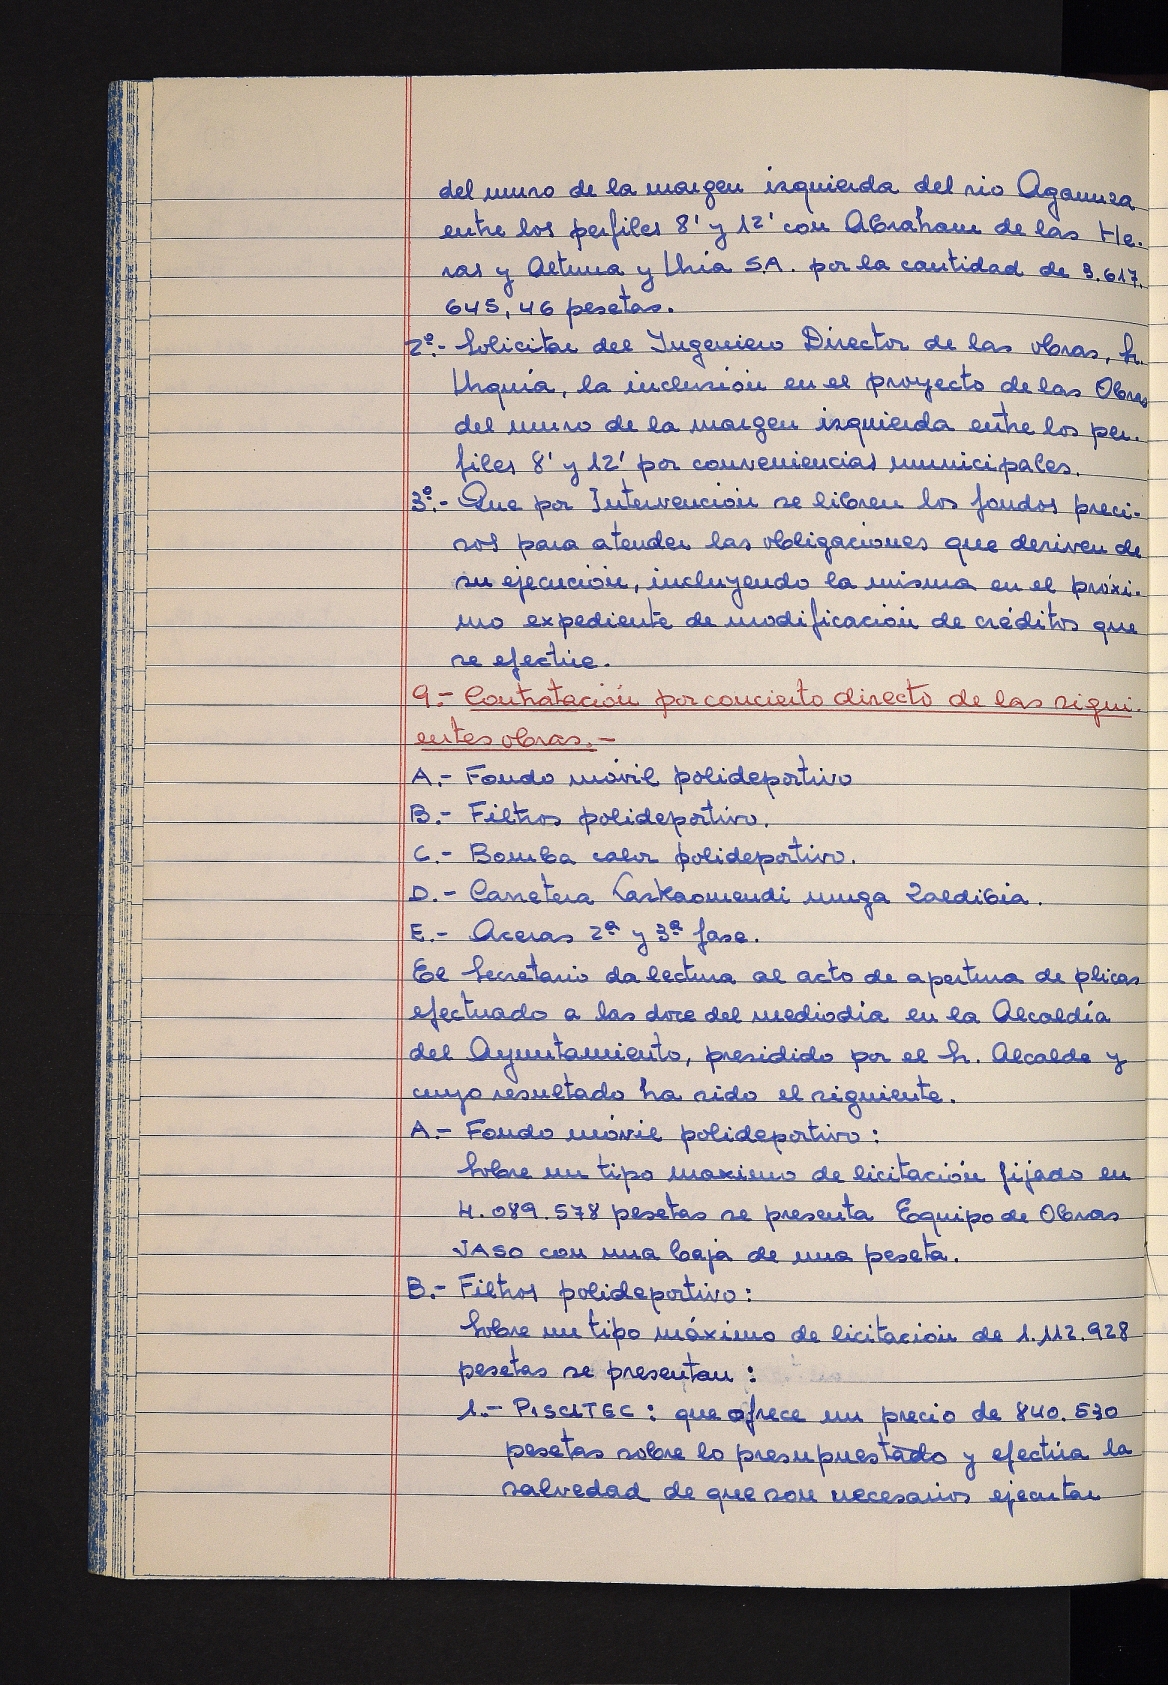 del muro de la margen izquierda del rio Agaunza
entre los perfiles 8' y 12' con Abraham de las He-
ras y Altuna y Uria S.A. por la cantidad de 3.617.
645,46 pesetas.
2º.- Solicitar del Ingeniero Director de las obras, Sr.
Urquía, la inclusión en el proyecto de las Obras
del muro de la margen izquierda entre los per-
files 8' y 12' por conveniencias municipales.
3º.- Que por Intervención se libren los fondos preci-
sos para atender las obligaciones que deriven de
su ejecución, incluyendo la misma en el próxi-
mo expediente de modificación de créditos que
se efectúe.
9.- Contratación por concierto directo de las sigui-
entes obras.-
A.- Fondo móvil polideportivo
B.- Filtros polideportivo.
C.- Bomba calor polideportivo.
D.- Carretera Lazkaomendi muga Zaldibia.
E.- Aceras 2ª y 3ª fase.
El Secretario da lectura al acto de apertura de plicas
efectuado a las doce del mediodía en la Alcaldía
del Ayuntamiento, presidido por el Sr. Alcalde y
cuyo resultado ha sido el siguiente.
A.- Fondo móvil polideportivo:
Sobre un tipo maximo de licitación fijado en
4.089.578 pesetas se presenta Equipo de Obras
JASO con una baja de una peseta.
B.- Filtros polideportivo:
Sobre un tipo máximo de licitación de 1.112.928
pesetas se presentan:
1.- PISCITEC: que ofrece un precio de 840.530
pesetas sobre lo presupuestado y efectúa la
salvedad de que son necesarios ejecutar